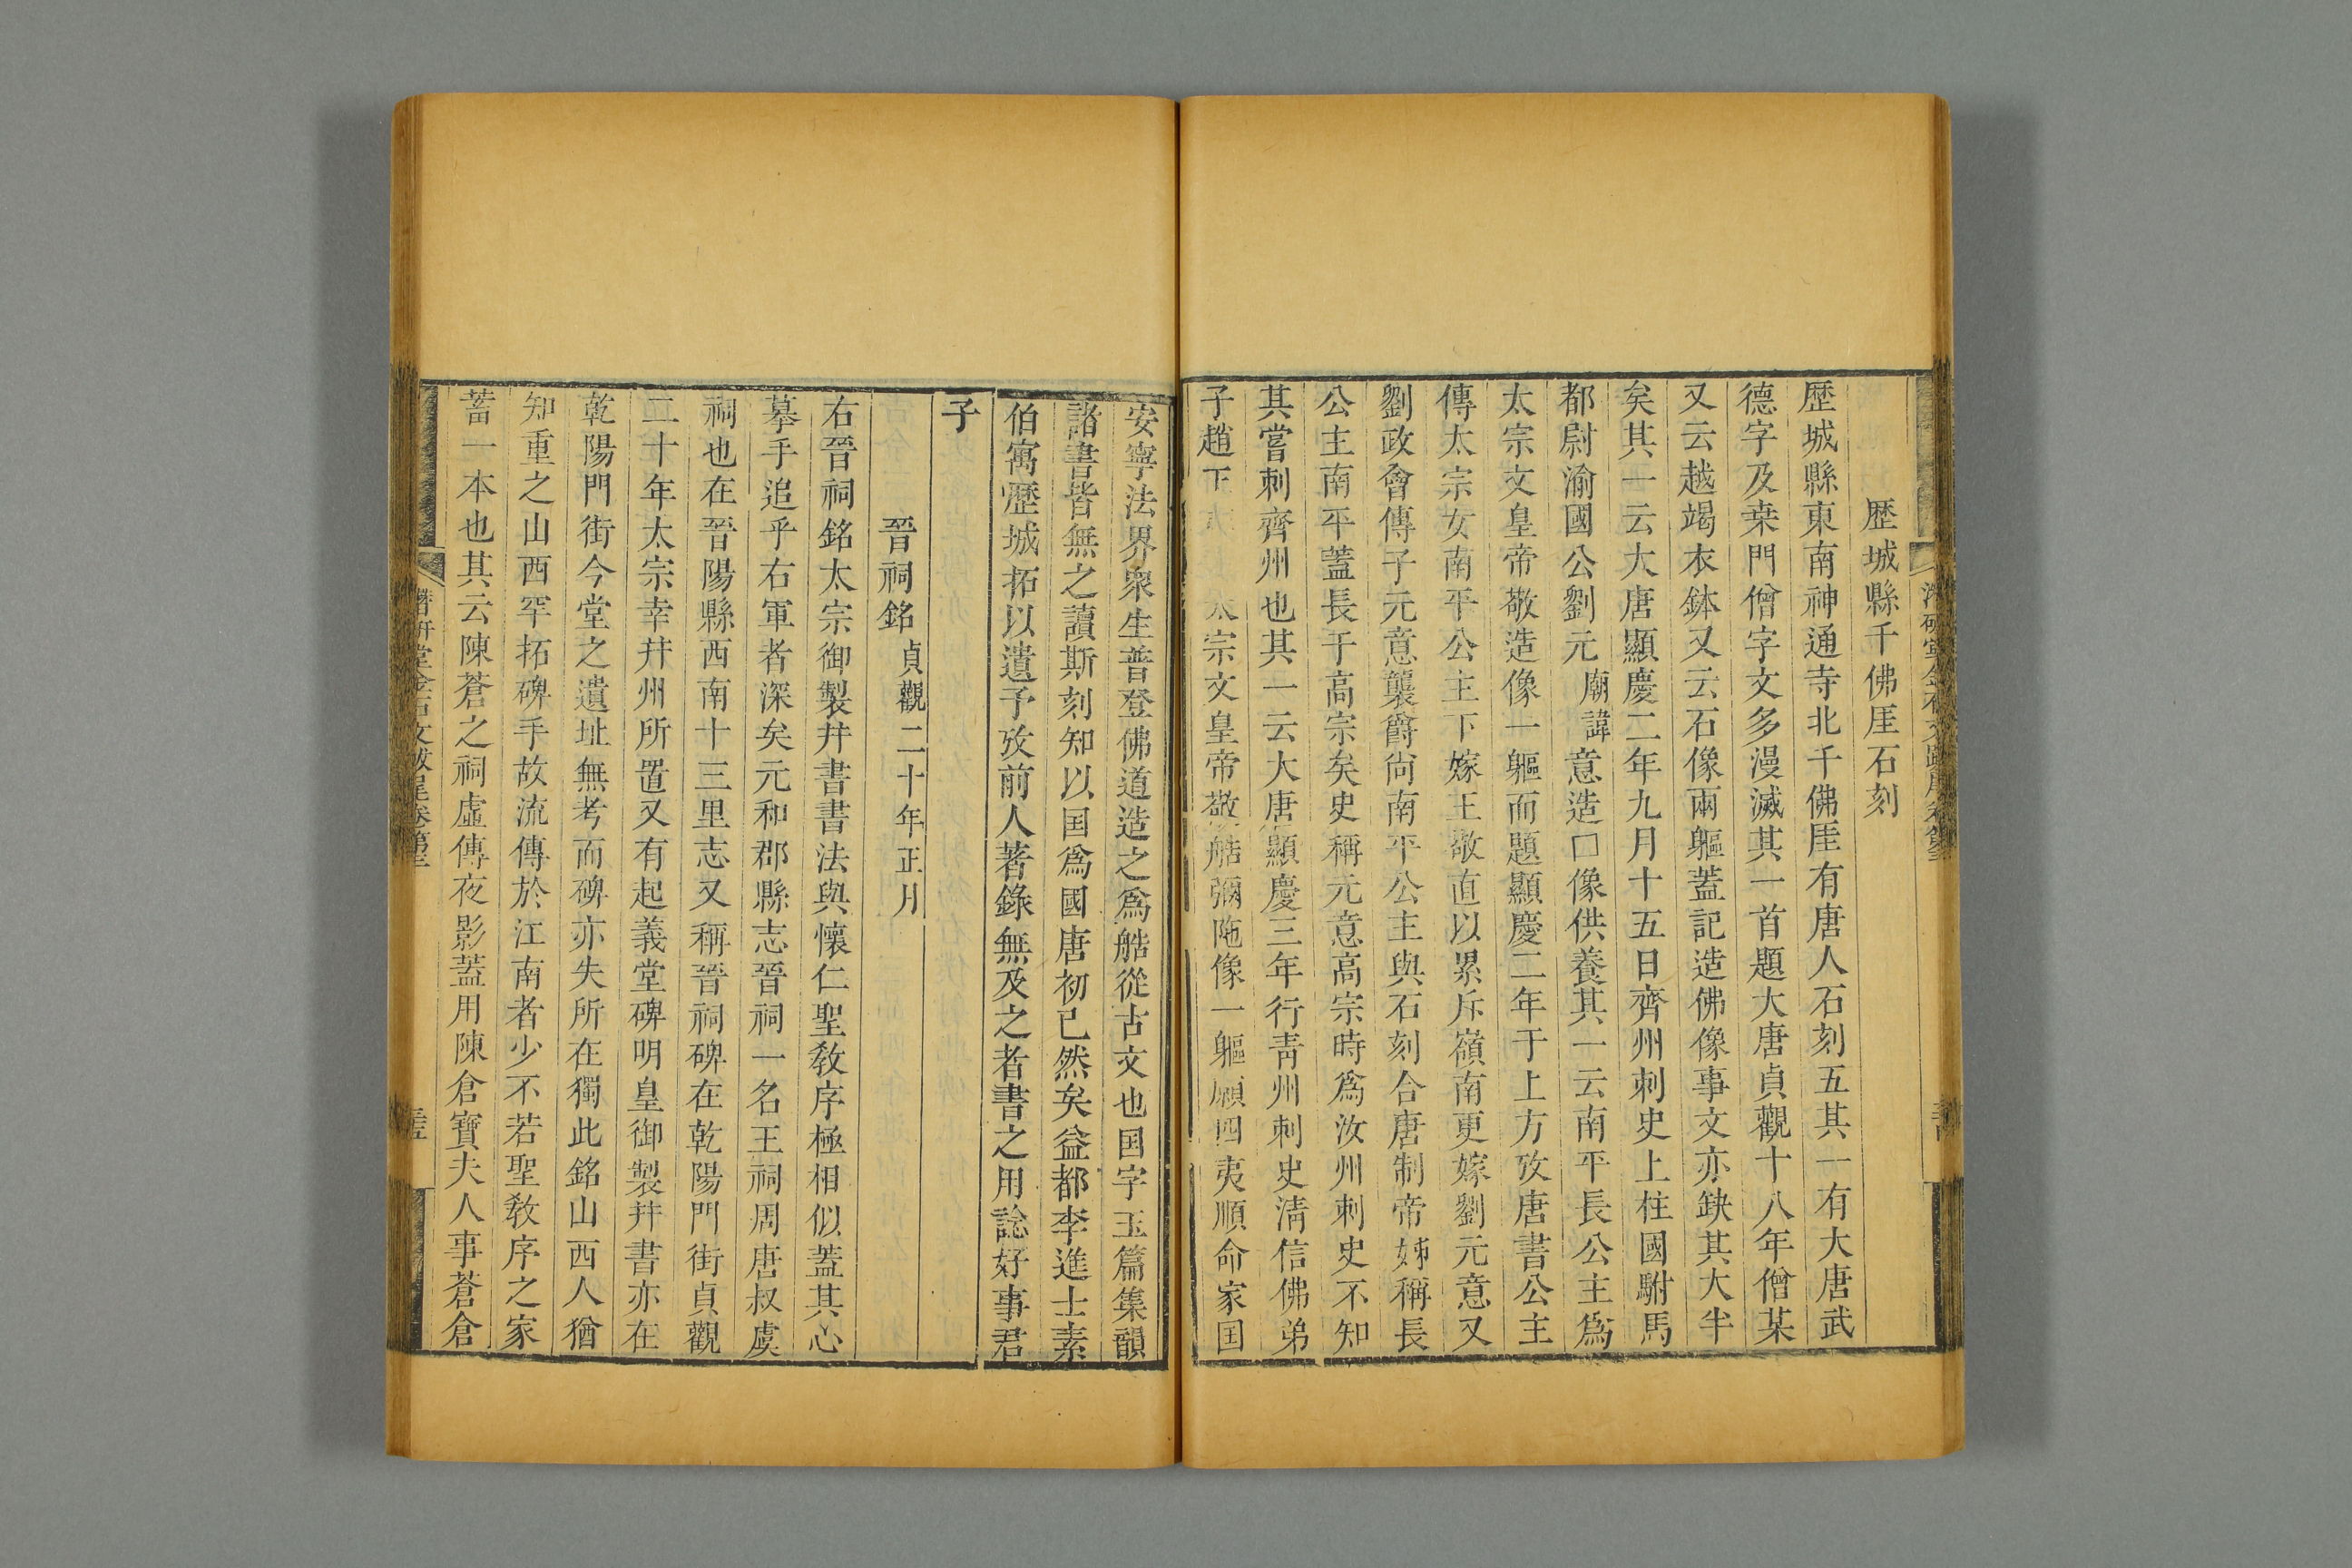 歷城縣千佛厓石刻
歷城縣東南神通寺北千佛厓有唐人石刻五其一有大唐武
德字及桒門僧字文多漫滅其一首題大唐貞觀十八年僧某
又云越竭衣鉢又云石像兩軀蓋記造佛像事文亦缺其大半
矣其一云大唐顯慶二年九月十五日齊州刺史上柱國駙馬
都尉渝國公劉元廟諱意造口像供養其一云南平長公主爲
太宗文皇帝敬造像一軀而題顯慶二年于上方攷唐書公主
傳太宗女南平公主下嫁王敬直以累斥嶺南更嫁劉元意又
劉政會傳子元意襲爵尙南平公主與石刻合唐制帝姊稱長
公主南平蓋長于高宗矣史稱元意高宗時爲汝州刺史不知
其嘗刺齊州也其一云大唐顯慶三年行青州刺史淸信佛弟
子趙下太宗文皇帝敬艁彌陁像一軀願四夷順命家囯
安寧法界衆生普登佛道造之爲艁從古文也囯字玉篇集韻
諸書皆無之讀斯刻知以囯爲國唐初已然矣益都李進士素
伯寓歷城拓以遺予攷前人著錄無及之者書之用諗好事君
子
晉祠銘貞觀二十年正月
右晉祠銘太宗御製幷書書法與懷仁聖敎序極相似蓋其心
摹手追乎右軍者深矣元和郡縣志晉祠一名王祠周唐叔虞
祠也在晉陽縣西南十三里志又稱晉祠碑在乾陽門街貞觀
二十年太宗幸幷州所置又有起義堂碑明皇御製幷書亦在
乾陽門街今堂之遺址無考而碑亦失所在獨此銘山西人猶
知重之山西罕拓碑手故流傳於江南者少不若聖敎序之家
蓄一本也其云陳蒼之祠虛傳夜影蓋用陳倉寶夫人事蒼倉
潛研堂金石文跋尾卷第